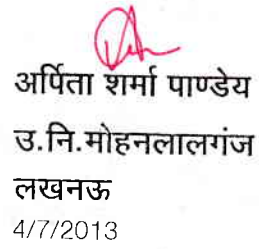 अर्पिता शर्मा पाण्डेय
उ.नि.मोहनलालगंज
लखनऊ
4/7/2013